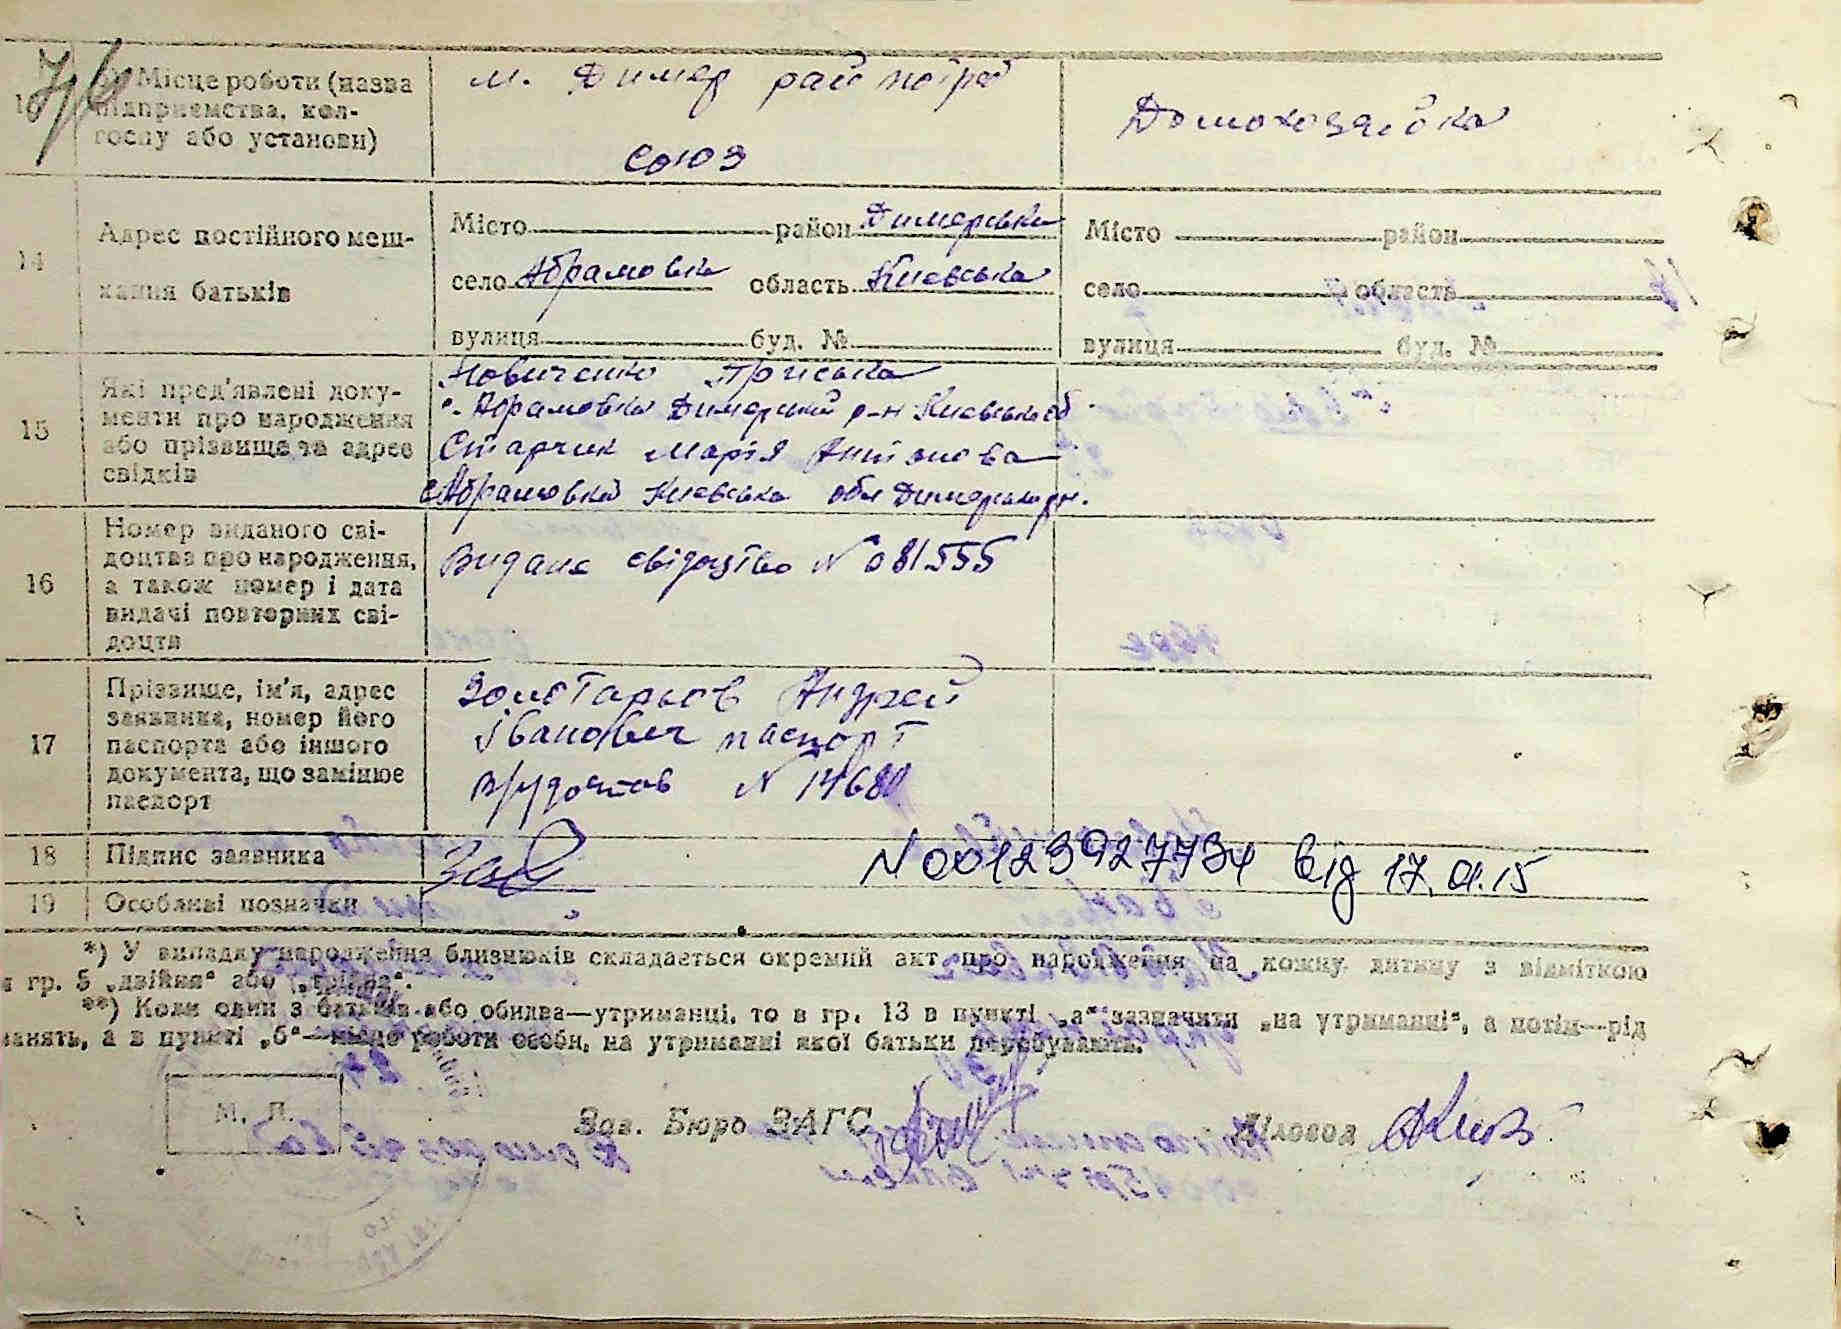 Місце роботи (назва
підприємства, кол-
госпу або установи)
м. Димер райпотреб
союз
Домохозяйка
14
Адрес постійного меш-
кання батьків
Місто район Димерська
село Абрамовка область Киевська
вулиця буд. №
Місто район
село область
вулиця буд. №
15
Які пред'явлені доку-
менти про народження
або прізвище та адрес
свідків
Новиченко Пріська
с. Абрамовка Димерський р-н Киевська об
Старчик Марія Антонова
с. Абрамовка Киевська обл Димерськ рн.
16
Номер виданого сві-
доцтва про народження,
а також номер і дата
видачі повторних сві-
доцтв
Видане свідоцтво N 081555
17
Прізвище, ім'я, адрес
заявника, номер його
паспорта або іншого
документа, що замінює
паспорт
Золотарьов Андрей
Іванович паспорт
N 14680
18 Підпис заявника
N00123927734 від 17.01.15
19 Особливі позначки
*) У випадку народження близнюків складається окремий акт про народження на кожну дитину з відміткою
в гр. 5 „двійня" або „трійня".
**) Коли один з батьків або обидва—утриманці, то в гр. 13 в пункті „а" зазначити „на утриманні", а потім—рід
занять, а в пункті „б"—місце роботи особи, на утриманні якої батьки перебувають.
М. П.
Зав. Бюро ЗАГС
Діловод